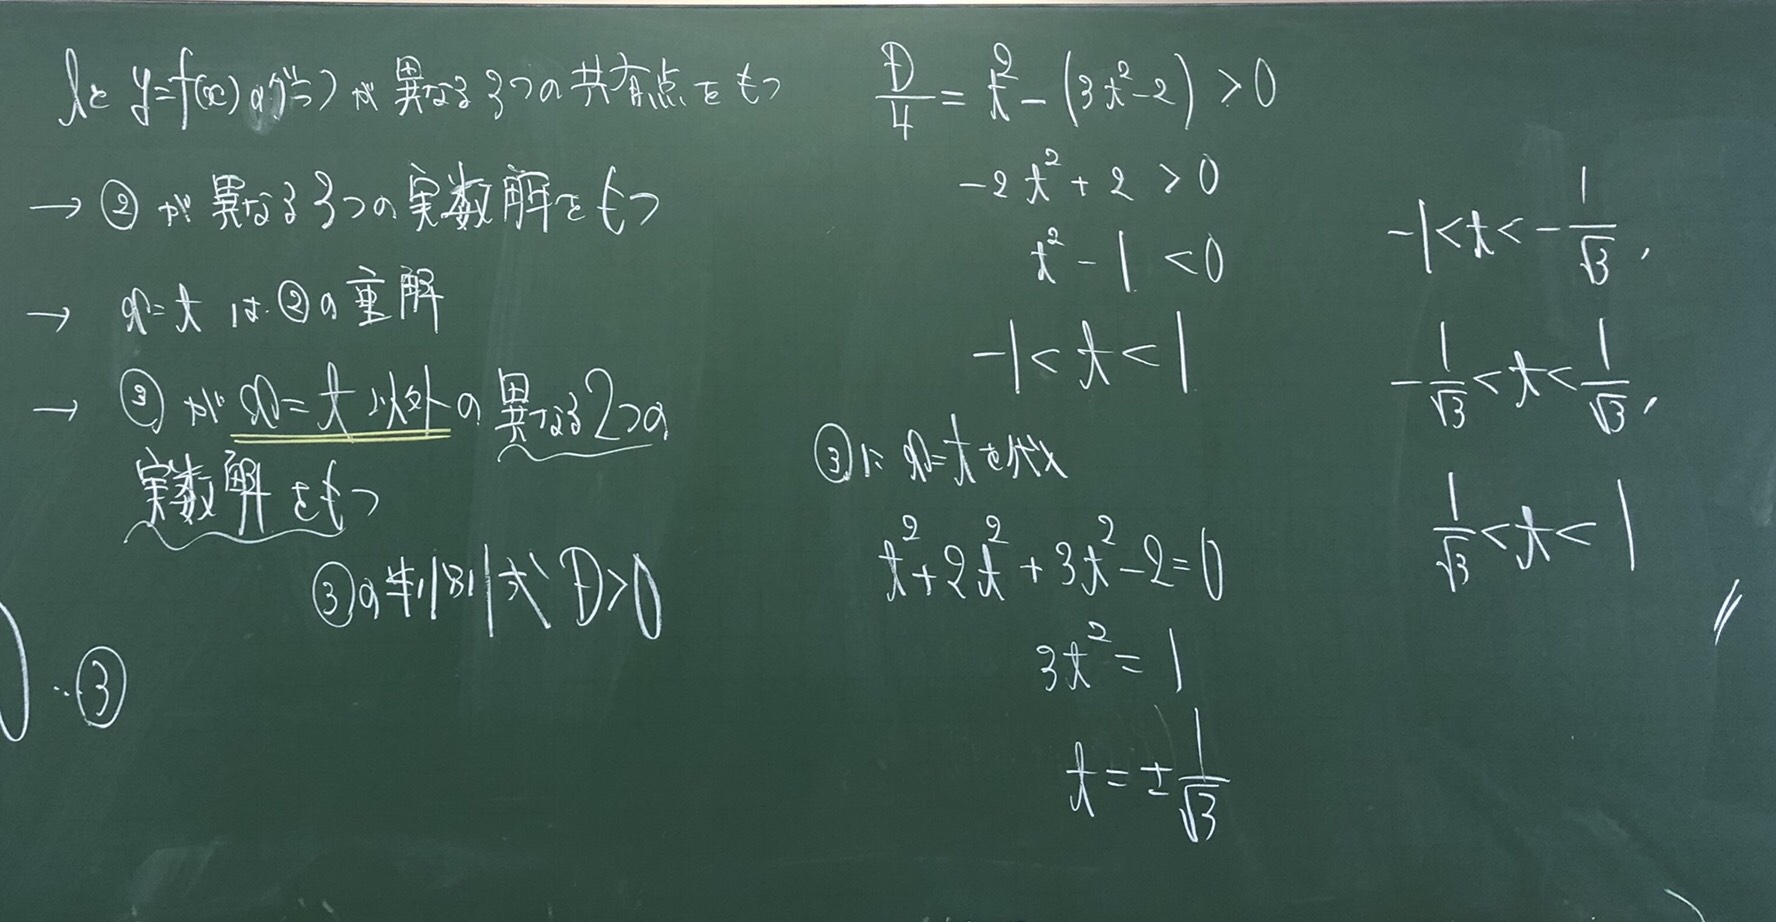 lとy=f(x)のグラフが異なる3つの共有点をもつ
→ ②が異なる3つの実数解をもつ
→ x=tは②の重解
→ ③がx=t以外の異なる2つの
実数解をもつ
③の判別式D>0
‥③
D/4 = t² - (3t²-2) > 0
-2t² + 2 > 0
t² - 1 < 0
-1 < t < 1
③にx=tを代入
t²+2t²+3t²-2=0
3t² = 1
t = ± 1/√3
-1 < t < - 1/√3 ,
- 1/√3 < t < 1/√3 ,
1/√3 < t < 1
//